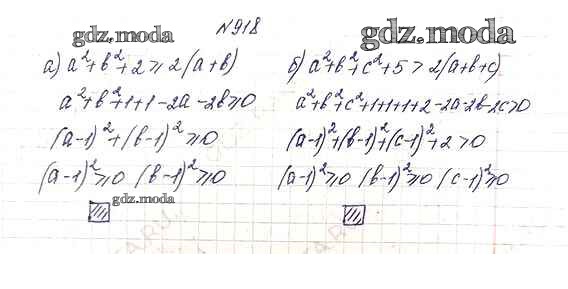 №918
gdz.moda
gdz.moda
а) a²+b²+2≥2(a+b)
a²+b²+1+1-2a-2b≥0
(a-1)²+(b-1)²≥0
(a-1)²≥0 (b-1)²≥0
gdz.moda
б) a²+b²+c²+5>2(a+b+c)
a²+b²+c²+1+1+1+2-2a-2b-2c>0
(a-1)²+(b-1)²+(c-1)²+2>0
(a-1)²≥0 (b-1)²≥0 (c-1)²≥0